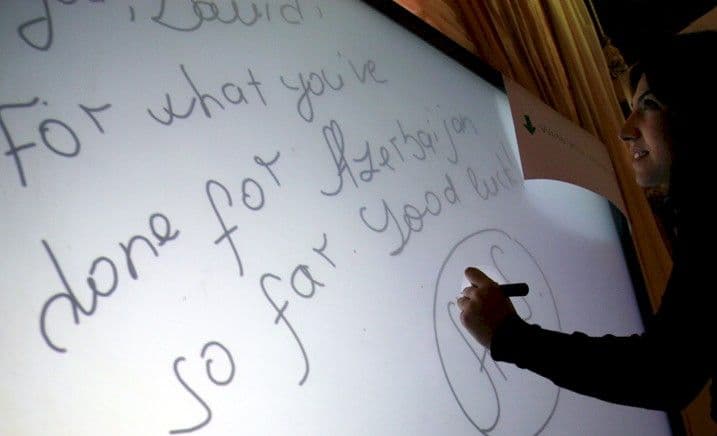 David,
For what you've
done for Azerbaijan
so far. Good luck!